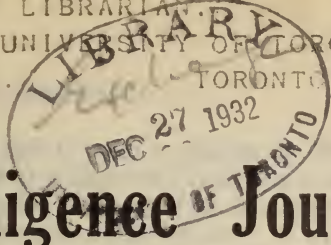 LIBRARIAN.
UNIVERSITY OF TOR
TORONTO
LIBRARY
DEC 27 1932
OF TORONTO
ligence Jou